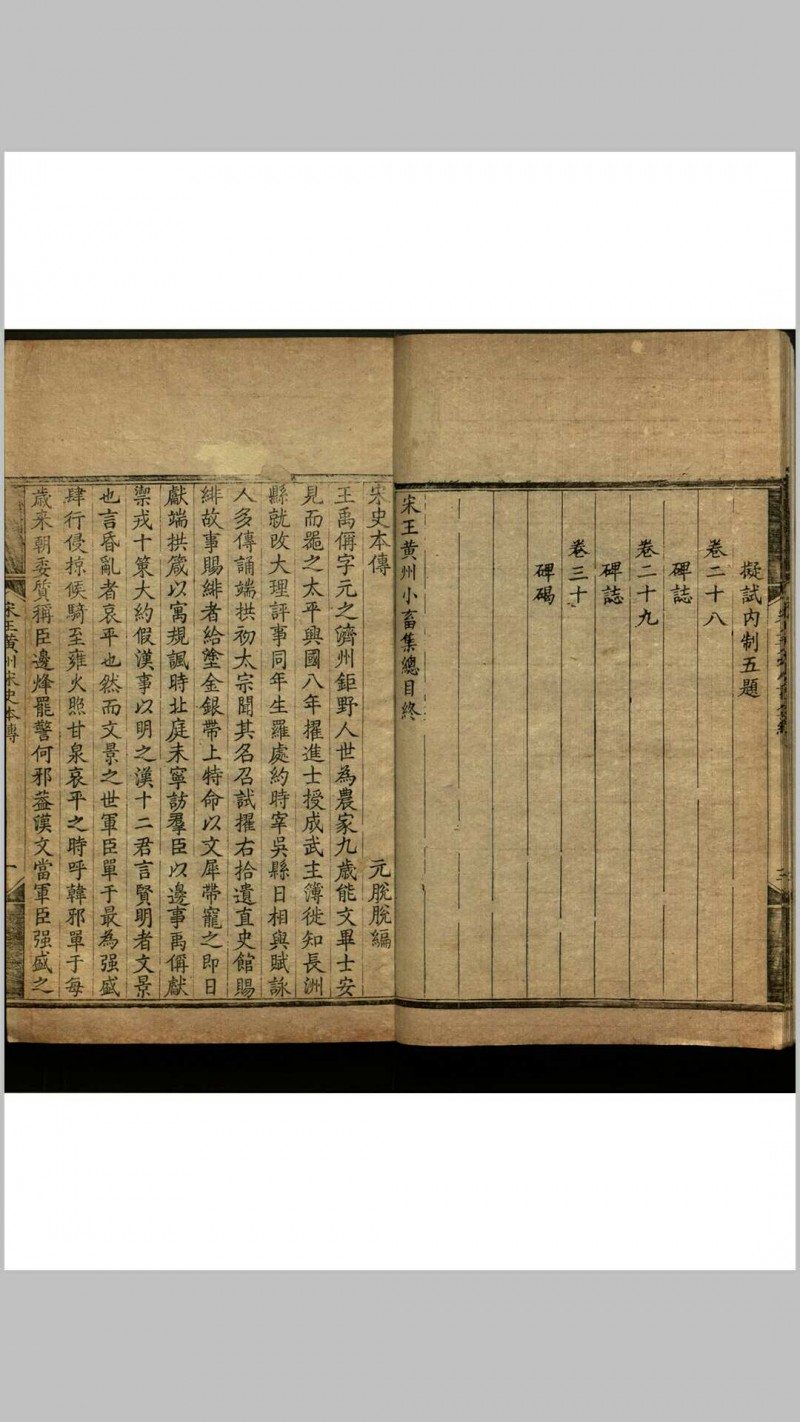 擬試内制五題
卷二十八
碑誌
卷二十九
碑誌
卷三十
碑碣
宋王黄州小畜集總目終
宋史本傳 元脫脫編
王禹偁字元之濟州鉅野人世為農家九歳能文畢士安
見而噐之太平興國八年擢進士授成武主簿徙知長洲
縣就改大理評事同年生羅處約時宰吳縣日相與賦詠
人多傳誦端拱初太宗聞其名召試擢右拾遺直史館賜
緋故事賜緋者給塗金銀帶上特命以文犀帶寵之即日
獻端拱箴以寓規諷時北庭未寧訪羣臣以邊事禹偁獻
禦戎十策大約假漢事以明之漢十二君言賢明者文景
也言昏亂者哀平也然而文景之世軍臣單于最為强盛
肆行侵掠候騎至雍火照甘泉哀平之時呼韓邪單于每
歳来朝委質稱臣邊烽罷警何邪葢漢文當軍臣强盛之
宋王黄州宋史本傳
一